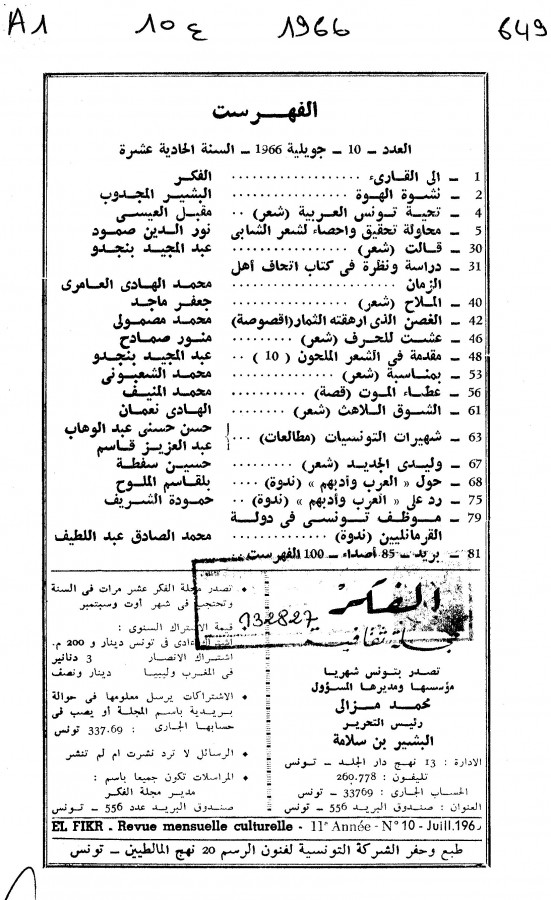 A1 10 ع 1966 649
الفهرست
العدد ــ 10 ــ جويلية 1966 ــ السنة الحادية عشرة
1 ــ الى القارىء .......... الفكر
2 ــ نشوة الهوة .......... البشير المجدوب
4 ــ تحية تونس العربية (شعر) .. مقبل العيسى
5 ــ محاولة تحقيق واحصاء لشعر الشابى نور الدين صمود
30 ــ قالت (شعر) .......... عبد المجيد بنجدو
31 ــ دراسة ونظرة فى كتاب اتحاف أهل
الزمان .......... محمد الهادى العامرى
40 ــ الملاح (شعر) .......... جعفر ماجد
42 ــ الغصن الذى ارهقته الثمار(اقصوصة) محمد مصمولى
46 ــ عشت للحرف (شعر) .......... منور صمادح
48 ــ مقدمة فى الشعر الملحون ( 10 ) .. عبد المجيد بنجدو
53 ــ بمناسبة (شعر) .......... محمد الشعبونى
56 ــ عطاء الموت (قصة) .......... محمد المنيف
61 ــ الشوق اللاهث (شعر) .......... الهادى نعمان
63 ــ شهيرات التونسيات (مطالعات) ... { حسن حسنى عبد الوهاب
عبد العزيز قاسم
67 ــ وليدى الجديد (شعر) .......... حسين سفطة
68 ــ حول « العرب وأدبهم » (ندوة) .. بلقاسم الملوح
75 ــ رد على « العرب وأدبهم » (ندوة) .. حمودة الشريف
79 ــ موظف تونسى فى دولة
القرمانليين (ندوة) .......... محمد الصادق عبد اللطيف
81 ــ بريد ــ 85 أصداء ــ 100 الفهرست ..
الفكر
مجلة ثقافية
132827
تصدر بتونس شهريا
مؤسسها ومديرها المسؤول
محمد مزالى
رئيس التحرير
البشير بن سلامة
الادارة : 13 نهج دار الجلد ــ تونس
تليفون : 260.778
الحساب الجارى : 33769 ــ تونس
العنوان : صندوق البريد 556 ــ تونس
• تصدر مجلة الفكر عشر مرات فى السنة
وتحتجب فى شهر اوت وسبتمبر
قيمة الاشتراك السنوى :
فى تونس دينار و 200 م.
اشتراك الانصار 3 دنانير
فى المغرب وليبيا دينار ونصف
• الاشتراكات يرسل معلومها فى حوالة
بريدية باسم المجلة أو يصب فى
حسابها الجارى : 337.69 تونس
• الرسائل لا ترد نشرت ام لم تنشر
• المراسلات تكون جميعا باسم :
مدير مجلة الفكر
صندوق البريد عدد 556 ــ تونس
EL FIKR - Revue mensuelle culturelle - 11e Année - N° 10 - Juill. 196
طبع وحفر الشركة التونسية لفنون الرسم 20 نهج المالطيين ــ تونس